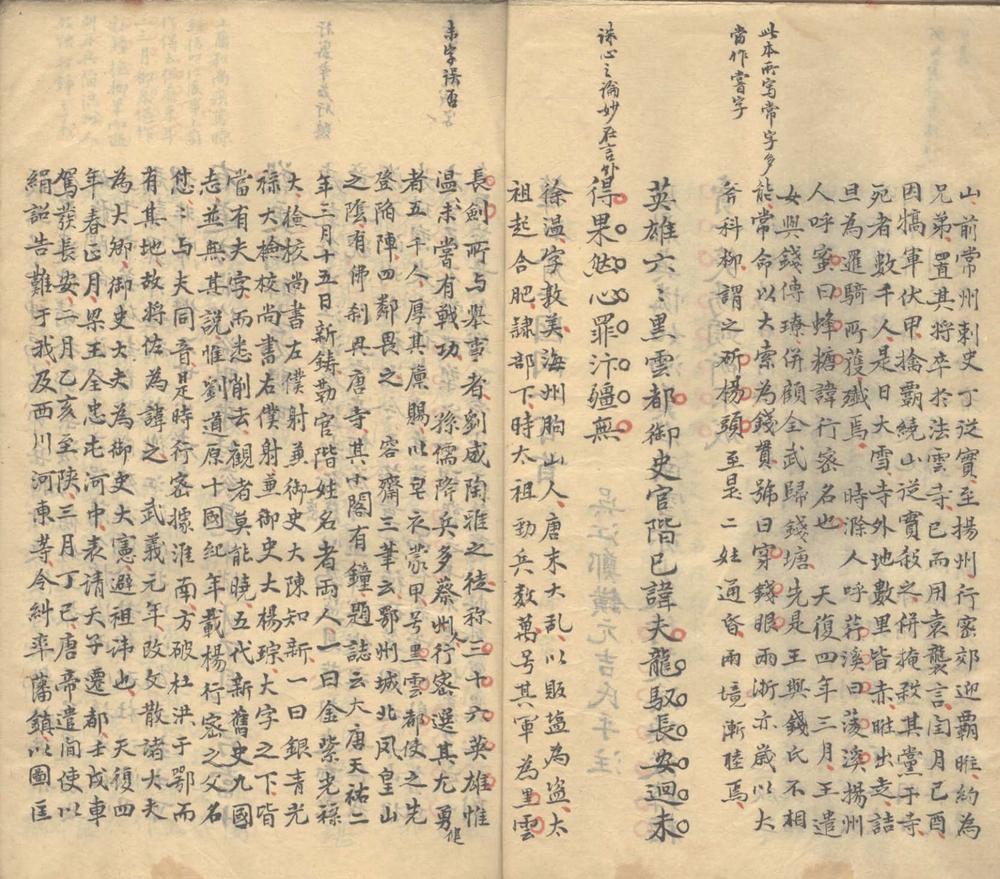 此本所寫常字多
當作嘗字
誅心之論妙在言外
山前常州刺史丁從實至揚州行密郊迎霸睢約為
兄弟置其將卒於法雲寺已而用袁襲言閏月已酉
因犒軍伏甲擒霸繞山從實殺之併掩殺其黨于寺
死者數千人是日大雪寺外地數里皆赤睢出走詰
旦為邏騎所獲殲焉時滁人呼荇溪曰菱溪揚州
人呼蜜曰蜂糖諱行密名也天復四年三月王遣
女與錢傳璙併顧全武歸錢塘先是王與錢氏不相
能常命以大索為錢貫號曰穿錢眼兩浙亦歲以大
斧科柳謂之斫楊頭至是二姓通昏兩境漸睦焉
英雄六〻黑雲都御史官階已諱夫龍馭長安迴未
得果然心罪汴疆無
徐溫字敦美海州朐山人唐末大亂以販塩為盜太
祖起合肥隷部下時太祖勁兵數萬号其軍為黑雲
未字誤否
長劍所與舉事者劉威陶雅之徒称三十六英雄惟
溫未嘗有戰功孫儒降兵多蔡州人行密選其尤勇健
者五千人厚其廩賜以皂衣蒙甲号黑雲都使之先
登陷陣四鄰畏之容齋三筆云鄂州城北凤皇山
之陰有佛刹曰唐寺其小閣有鐘題誌云大唐天祐二
年三月十五日新鋳勒官階姓名者兩人一曰金紫光祿
大檢校尚書左僕射兼御史大陳知新一曰銀青光
祿大檢校尚書右僕射兼御史大楊琮大字之下皆
當有夫字而悉削去觀者莫能曉五代新舊史九國
志並無其說惟劉道原十國紀年載楊行密之父名
怤〻與夫同音是時行密據淮南方破杜洪于鄂而
有其地故將佐為諱之武義元年改文散諸大夫
為大卿御史大夫為御史大憲避祖諱也天復四
年春正月梁王全忠屯河中表请天子遷都壬戌車
駕發長安二月乙亥至陕三月丁已唐帝遣间使以
絹詔告難于我及西川河東等令糾率藩鎮以圖匡